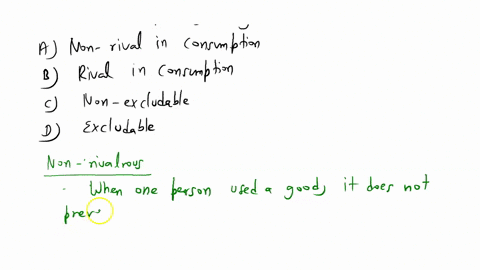 A) Non-rival in consumption
B) Rival in consumption
C) Non-excludable
D) Excludable
Non-rivalrous
. When one person used a good, it does not
prev